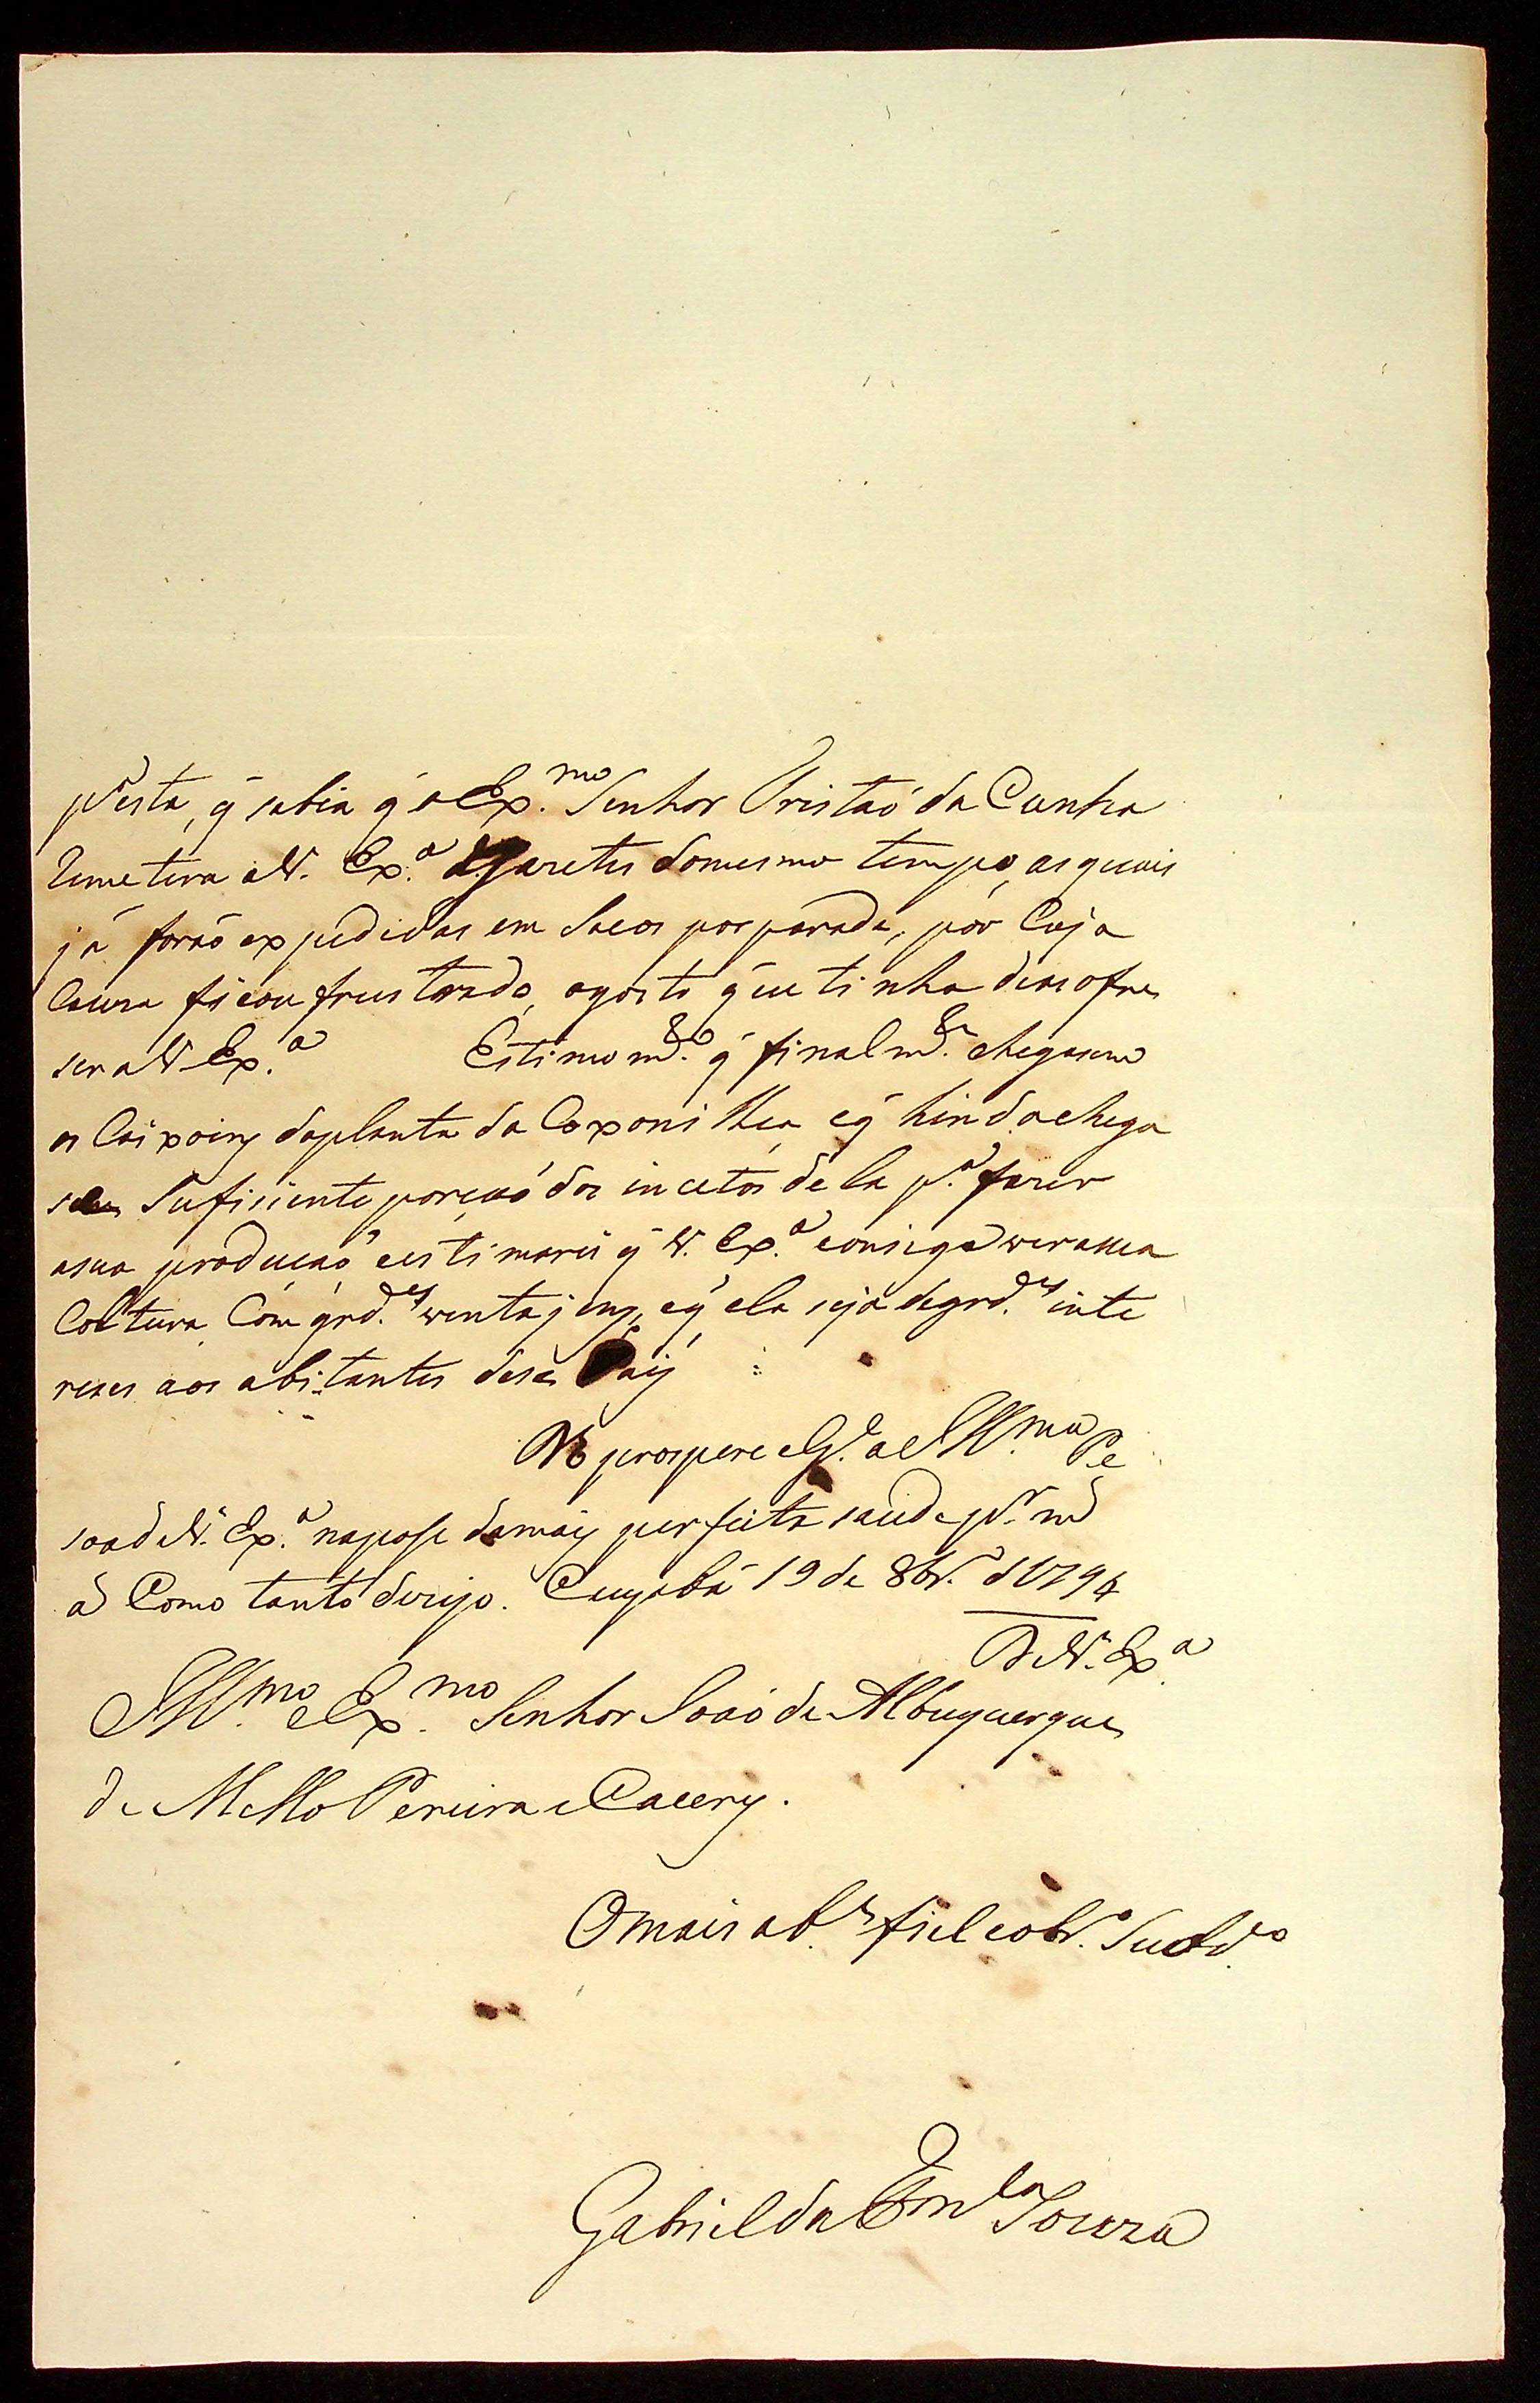 p.ª esta, q̃ sabia q̃ o Ex.mo Senhor Tristaõ da Cunha
Remetera a V. Ex.ª Gazetas do mesmo tempo, as quais
já foraõ expedidas em Sacos por parada, por Cuja
Cauza ficou frustrado, o gosto q̃ eu tinha de as ofre
ser a V. Ex.ª Estimo m.to q̃ final m.te chegasem
os Caixoins da planta da Coxonilha, e q̃ hinda chega
se Sufisiente porçaõ dos incetos dela p.ª fazer
a sua produçaõ e estimarei q̃ V. Ex.ª consiga ver a sua
Coltura Com grd.es ventajens, e q̃ ela seja de grd.es inte
reses aos abitantes dese Paiz
Ds prospere e G.de a Ill.ma Pe
soa de V. Ex.ª na pose da mais perfeita saude p.r md
ad Como tanto dezejo. Cuyabá 19 de 8br.º d 1794
De V. Ex.ª
Ill.mo e Ex.mo Senhor Joaõ de Albuquerque
de Mello Pereira e Caceres.
O mais ab.te fiel e obr.º Sudd.to
Gabriel da Fon.ca Souza